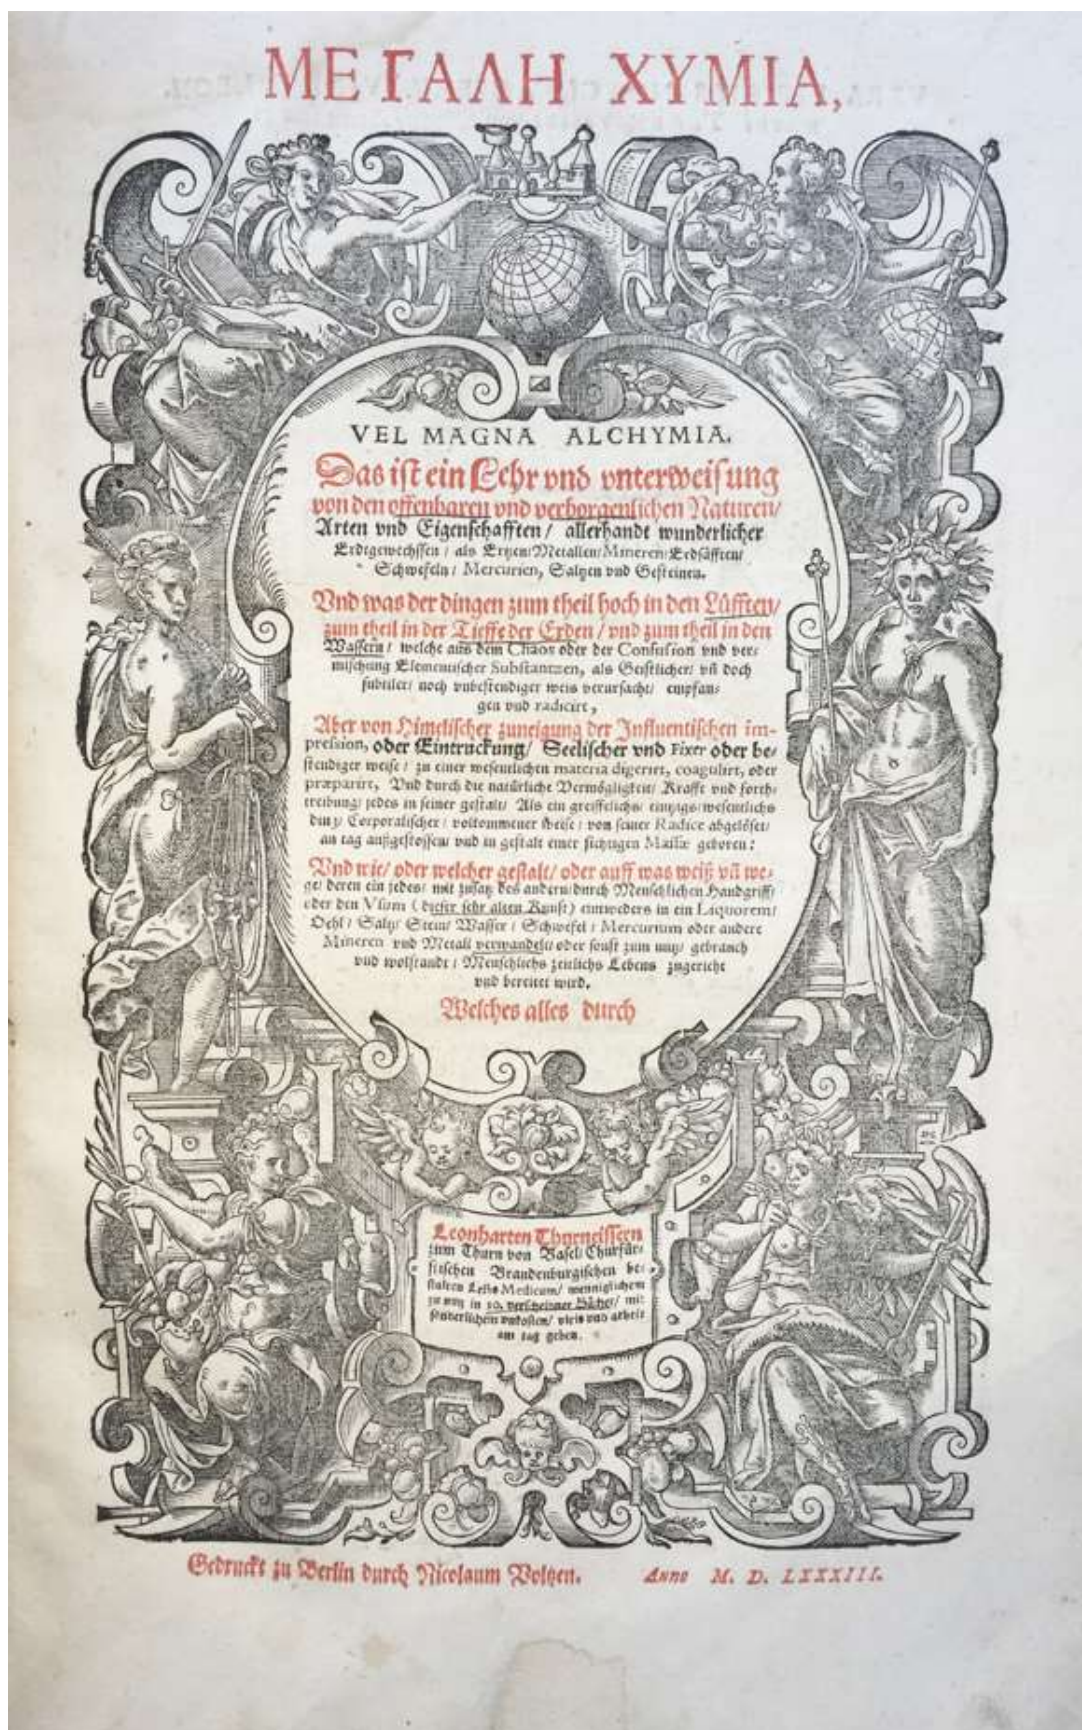 ΜΕΓΑΛΗ ΧΥΜΙΑ,
VEL MAGNA ALCHYMIA.
Das ist ein Lehr vnd vnterweisung
von den offenbaren vnd verborgenlichen Naturen/
Arten vnd Eigenschafften / allerhandt wunderlicher
Erdtgewechssen / als Ertzen/Metallen/Mineren/Erdsäfften/
Schwefeln / Mercurien, Saltzen vnd Gesteinen.
Vnd was der dingen zum theil hoch in den Lüfften/
zum theil in der Tieffe der Erden / vnd zum theil in den
Wassern / welche aus dem Chaos oder der Confusion vnd ver-
mischung Elementischer Substantzen, als Geistlicher/ vñ doch
subtiler/ noch vnbestendiger weis verursacht/ empfan-
gen vnd radicirt,
Aber von Himelischer zuneigung der Influentischen im-
pression, oder Eintruckung/ Seelischer vnd Fixer oder be-
stendiger weise / zu einer wesentlichen materia digerirt, coagulirt, oder
præparirt, Vnd durch die natürliche Vermögligkeit/ Krafft vnd forth-
treibung/ jedes in seiner gestalt/ Als ein greiffelichs/ eintzigs/wesentlichs
ding/ Corporalischer / volkommener Weise / von seiner Radice abgelöset/
an tag außgestossen/ vnd in gestalt einer sichtigen Massæ geboren:
Vnd wie/ oder welcher gestalt/ oder auff was weiß vñ we-
ge/ deren ein jedes/ mit zusatz des andern/durch Menschlichen Handgriff/
oder den Vsum (dieser sehr alten Kunst) eintweders in ein Liquorem/
Oehl / Saltz/ Stein/ Wasser / Schwefel / Mercurium oder andere
Mineren vnd Metall verwandelt/ oder sonst zum nutz/ gebrauch
vnd wolstandt / Menschlichs zeitlichs Lebens zugericht
vnd bereitet wird.
Welches alles durch
Leonharten Thurneissern
zum Thurn von Basel/ Churfür-
stischen Brandenburgischen be-
stalten Leibs Medicum/ menniglichem
zu nutz in 10. verscheidner Bücher/ mit
sonderlichem vnkosten/ vleis vnd arbeit
am tag geben.
Gedruckt zu Berlin durch Nicolaum Voltzen. Anno M. D. LXXXIII.